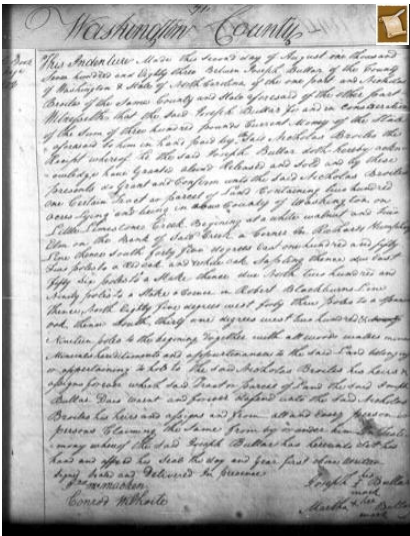 71.
Washington County
This Indenture Made this second day of August one thousand
Seven hundred and Eighty three Between Joseph Bullar of the County
of Washington & State of North Carolina of the one part and Nicholas
Broiles of the Same County and State aforesaid of the other part
Witnesseth that the said Joseph Bullar for and in Consideration
of the Sum of three hundred pounds Current Money of the State
aforesaid to him in hand paid by Said Nicholas Broiles the
Receipt whereof he the said Joseph Bullar doth hereby ackn-
-owledge have Granted aliend Released and Sold and by these
presents do grant and Confirm unto the said Nicholas Broiles
one Certain Tract or parcel of Land Containing two hundred
acres lying and being in County of Washington on
Little Limestone Creek Begining at a white walnut and two
Elm on the Bank of Said Creek a Corner to Humphreys
Line thence South forty five degrees East one hundred and fifty
two poles to a Red oak and white oak Sapling thence due East
fifty Six poles to a Stake thence due North two hundred and
Ninety poles to a Stake a Corner in Robert Blackburns Line
thence North Eighty five degrees west forty three poles to a
oak, thence South thirty one degrees west two hundred &
Nineteen poles to the begining Together with all woods waters mines
Minerals hereditaments and appurtenances to the said Land belonging
or appertaining to hold to the said Nicholas Broiles his heirs &
assigns forever which said Tract or parcel of Land the said Joseph
Bullar Does warrant and forever defend unto the said Nicholas
Broiles his heirs and assigns and from all and every person or
persons Claiming the Same from by or under him
-mony whereof the said Joseph Bullar has hereunto Set his
hand and affixed his Seal the day and year first above written
Signed Sealed and Delivered In presence
Jas
Conrod
Joseph his mark Bullar
Martha her mark Bullar